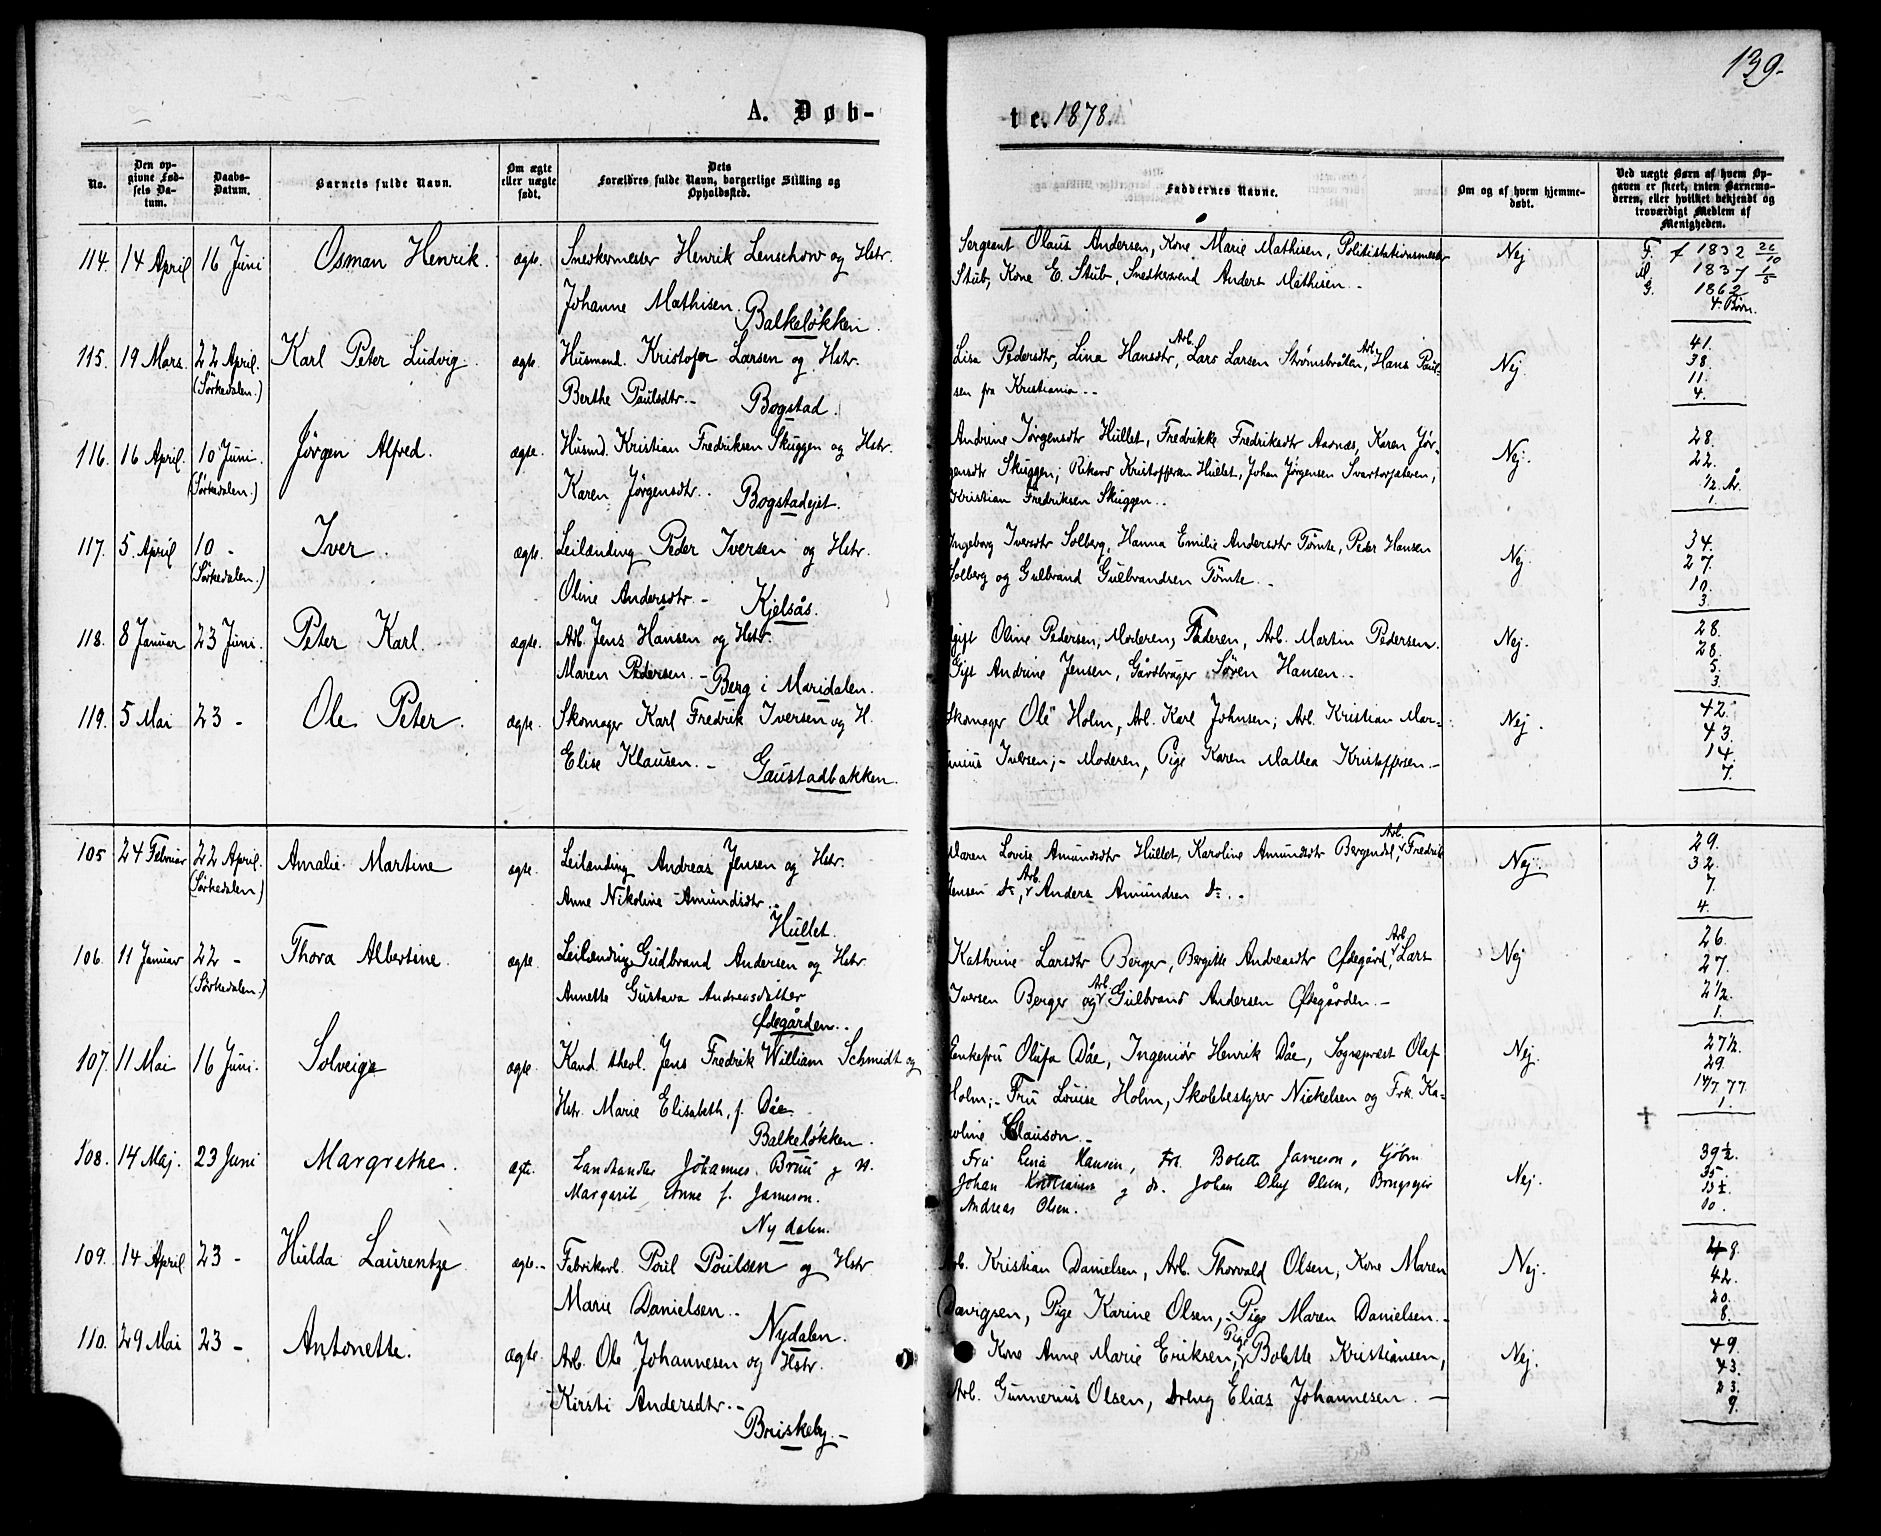 139.
A. Døb-
te. 1878.
No.
Den op-
givne Fød-
sels Da-
tum.
Daabs-
Datum.
Barnets fulde Navn.
Om ægte
eller uægte
født.
Dets
Forældres fulde Navn, borgerlige Stilling og
Opholdssted.
Faddernes Navne.
Om og af hvem hjemme-
døbt.
Ved uægte Børn af hvem Op-
gaven er skeet, enten Barnemo-
deren, eller hvilket bekjendt og
troværdigt Medlem af
Menigheden.
114. 14 April 16 Juni Osman Henrik. ægte. Snedkermester Henrik Lenschow og Hstr.
Johanne Mathisen.
Balkeløkken.
Sergeant Olaus Andersen, Kone Marie Mathisen, Politistationsmester
Stub, Kone E. Stub, Snedkersvend Anders Mathisen.
Nej
F. f 1832 26/10
M. 1837 1/5
G. 1862
4. Børn.
115. 19 Mars. 22 April. Karl Peter Ludvig. ægte. Husmand. Kristofer Larsen og Hstr.
(Sørkedalen.)
Berthe Paulsdtr.
Bogstad.
Lisa Pedersdtr, Lina Hansdtr, Arb. Lars Larsen Strømsbråten, Arb. Hans Paul-
sen fra Kristiania.
Nej.
41.
38.
11.
4.
116. 16 April. 10 Juni. Jørgen Alfred. ægte. Husmd. Kristian Fredriksen Skuggen og Hstr.
(Sørkedalen.)
Karen Jørgensdtr.
Bogstadejet.
Andrine Jørgensdtr Hullet, Fredrikke Fredriksdtr Aasnæs, Karen Jør-
gensdtr Skuggen; Rikard Kristoffersen Hullet, Johan Jørgensen Svartorsæteren,
Kristian Fredriksen Skuggen.
Nej.
28.
22.
1/2 År.
1.
117. 5 April 10 - Iver. ægte. Leilænding Peder Iversen og Hstr.
(Sørkedalen.)
Oline Andersdtr.
Kjelsås.
Ingeborg Iversdtr Solberg, Hanna Emilie Andersdtr Tømte, Peder Hansen
Solberg og Gulbrand Gulbrandsen Tømte.
Nej.
34.
27.
10.
3.
118. 8 Januar 23 Juni. Peter Karl. ægte. Arb. Jens Hansen og Hstr.
Maren Pedersen.
Berg i Maridalen.
Ugift Oline Pedersen, Moderen, Faderen, Arb. Martin Pedersen.
Gift Andrine Jensen, Gårdbruger Søren Hansen.
Nej.
28.
28.
5.
3.
119. 5 Mai 23 - Ole Peter. ægte. Skomager Karl Fredrik Iversen og H.
Elise Klausen.
Gaustadbakken.
Skomager Ole Holm, Arb. Karl Johnsen; Arb. Kristian Mar-
tinius Iversen; - Moderen, Pige Karen Mathea Kristoffersen.
Nej.
42.
43.
14.
7.
105 24 Februar 22 April. Amalie Martine ægte. Leilænding Andreas Jensen og Hstr.
(Sørkedalen)
Anne Nikoline Amundsdtr.
Hullet.
Maren Lovise Amundsdtr Hullet, Karoline Amundsdtr Bergendal, Arb. Fredrik
Jensen ds, Arb. Anders Amundsen ds.
Nej.
29.
32.
7.
4.
106. 11 Januar 22 - Thora Albertine. ægte. Leilænding Gudbrand Andersen og Hstr
(Sørkedalen.)
Annette Gustava Andreasdatter
Ødegården.
Kathrine Larsdtr Berger, Bergitte Andreasdtr Ødegård, Arb. Lars
Iversen Berger og Arb. Gulbrand Andersen Ødegården.
Nej
26.
27.
2 1/2.
1.
107. 11 Mai 16 Juni. Solveig. ægte. Kand. theol. Jens Fredrik William Schmidt og
Hstr. Marie Elisabeth, f. Dåe.
Balkeløkken.
Enkefru Olufa Dåe, Ingeniør Henrik Dåe, Sognepræst Olaf
Holm; - Fru Louise Holm, Skolebestyrer Nickelsen og Frk. Ka-
roline Clauson.
Nej.
27 1/2.
29.
14/7 77.
1.
108. 14 Maj. 23 Juni Margrethe. ægte. Landhandler Johannes Bruu og H.
Margarit Anne f. Jameson.
Nydalen.
Fru Lina Hansen, Frk. Bolette Jameson, Kjøbm
Johan Kristiansen og do. Johan Oluf Olsen, Brugseier
Andreas Olsen.
Nej.
39 1/2.
35.
13 1/2.
10.
109. 14 April 23 - Hulda Laurentze. ægte. - Fabrikarb. Poul Poulsen og Hstr
Marie Danielsen.
Nydalen.
Arb. Kristian Danielsen, Arb. Thorvald Olsen, Kone Maren
Davigsen, Pige Karine Olsen, - Pige Maren Danielsen. -
Nej.
48.
42.
20.
8.
110. 29 Mai 23 - Antonette. ægte. Arb. Ole Johannesen og Hstr.
Kirsti Andersdtr.
Briskeby.
Kone Anne Marie Eriksen, Pige Bolette Kristiansen,
Arb. Gunnerius Olsen, Dreng Elias Johannesen. -
Nej.
49.
43.
23.
9.